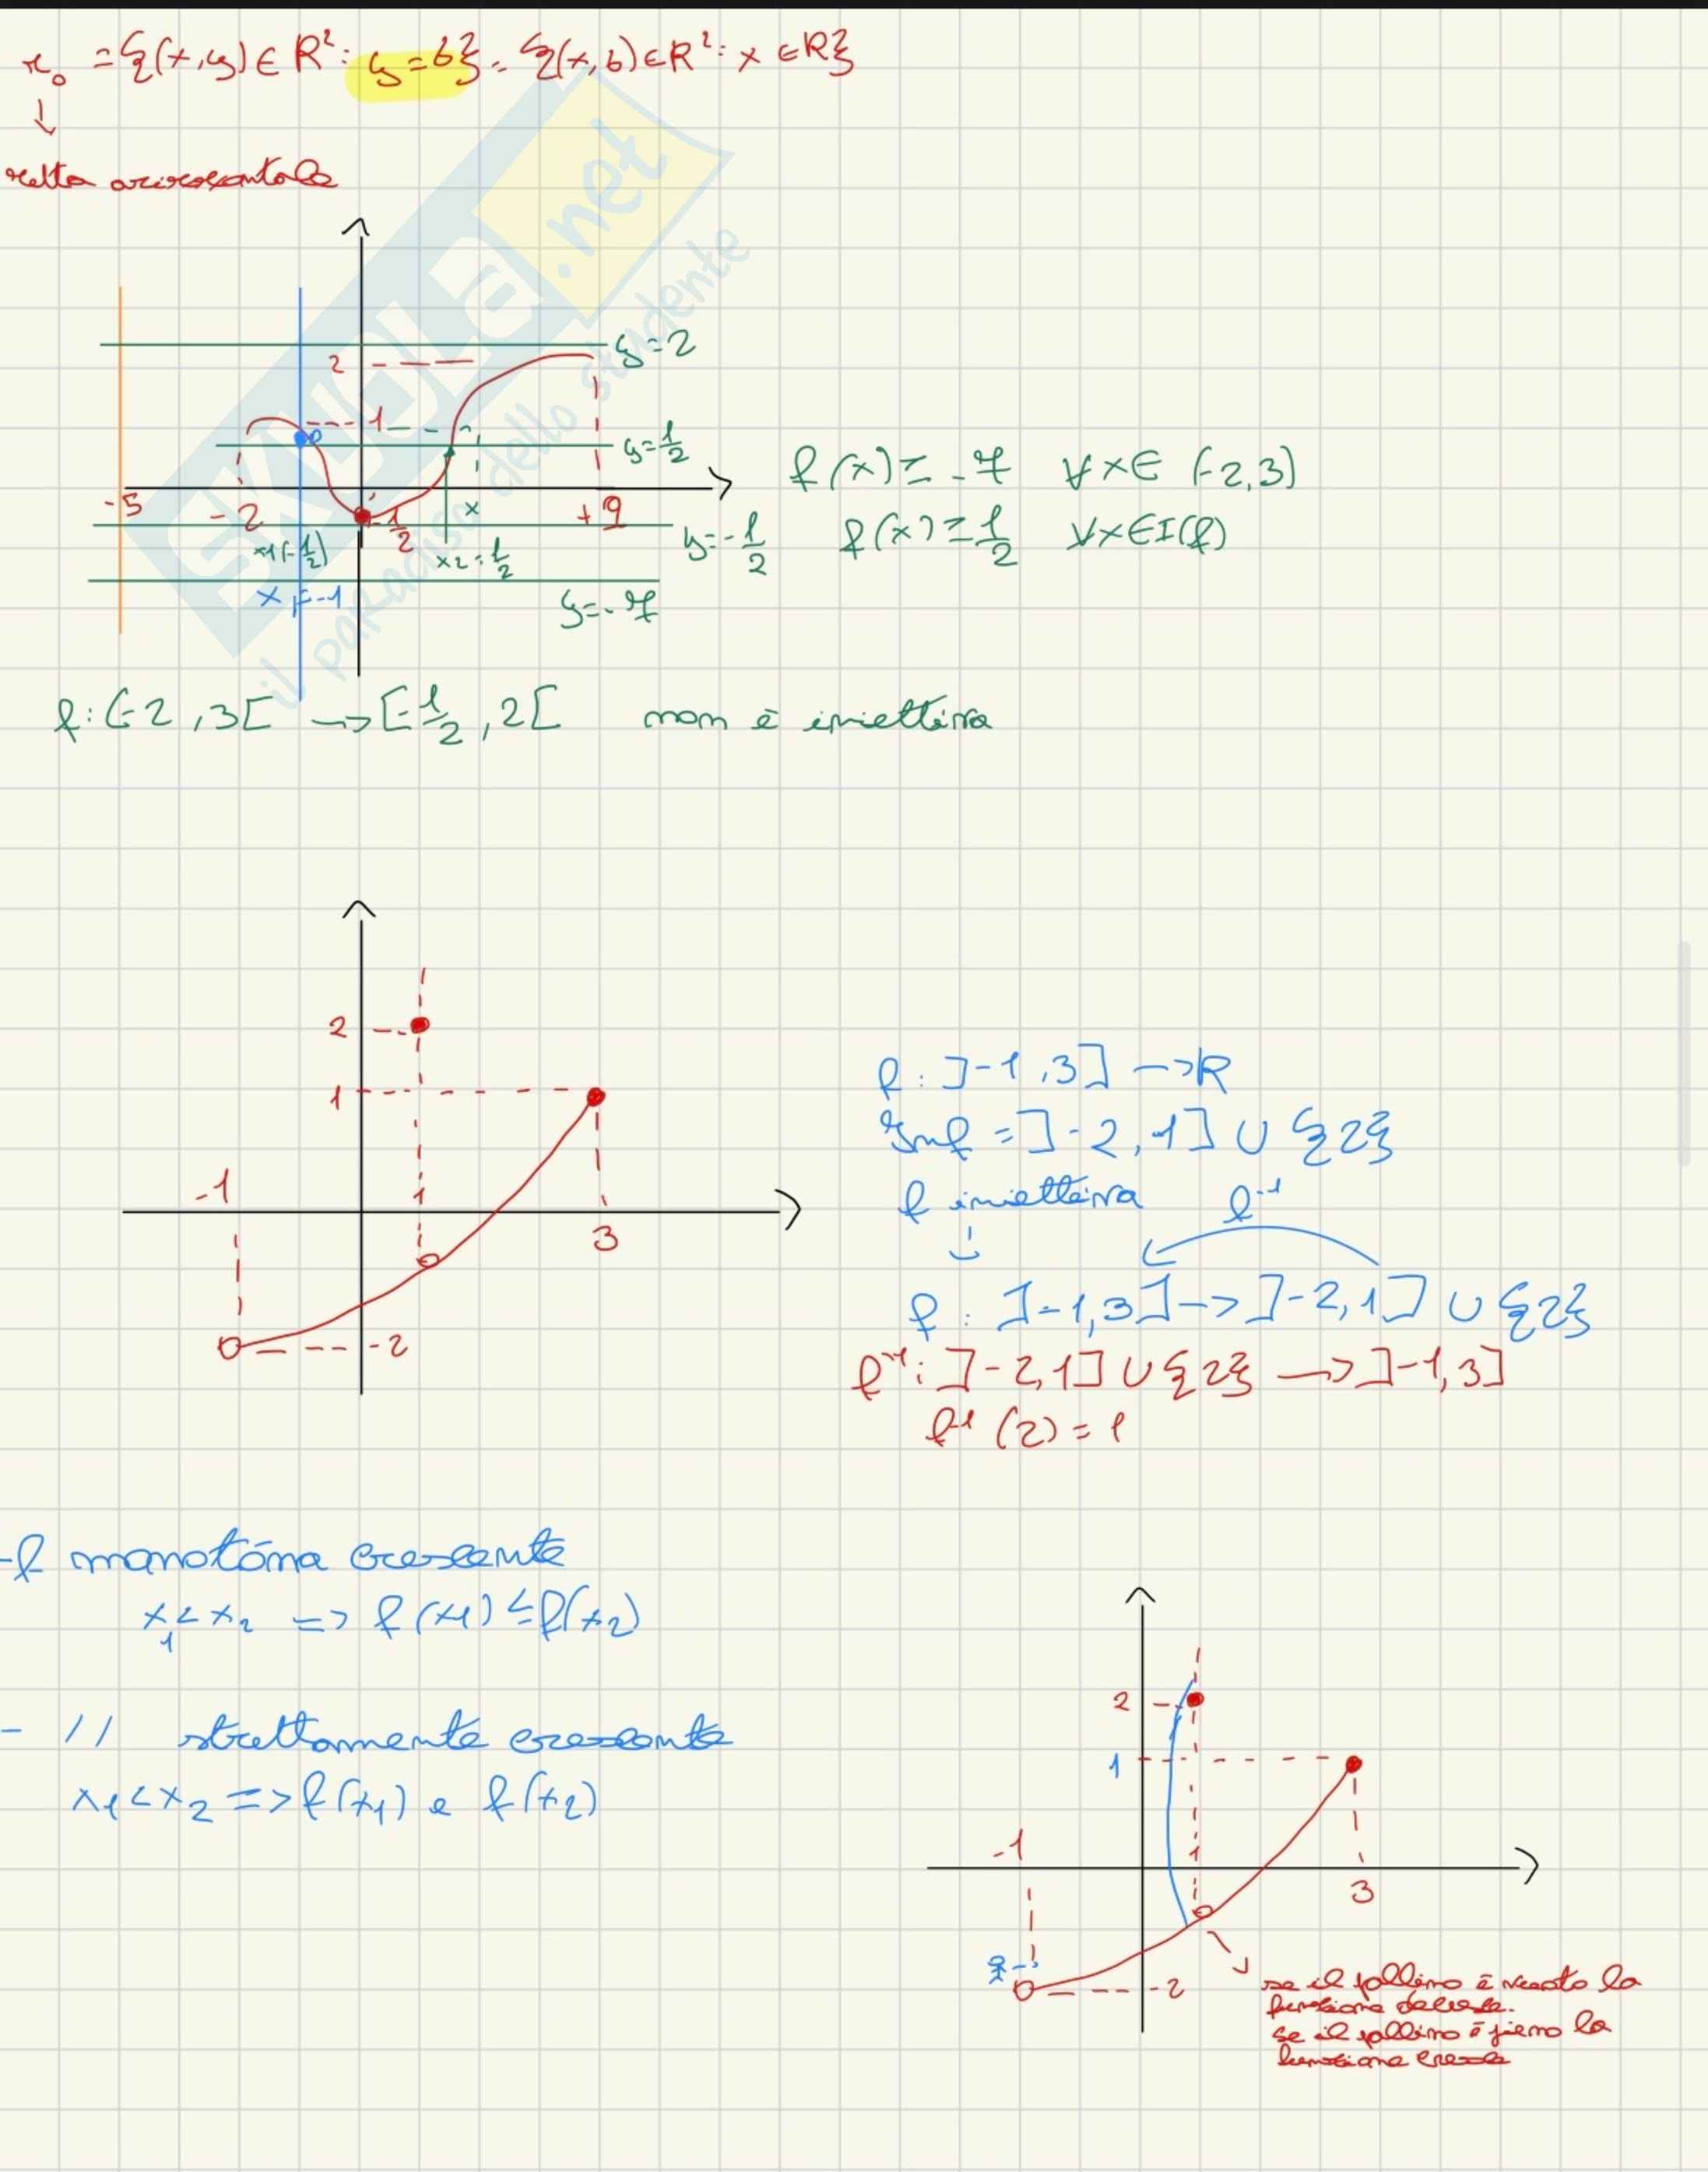 r₀ = {(x,y) ∈ R²: y=b} = {(x,b) ∈ R²: x ∈ R}
↓
retta orizzontale
y=2
2
1
y=1/2
-5
-2
-1/2
x
+9
y=-1/2
x1(-1/2)
x2=1/2
x1=-1
y=-7
f(x) ≥ -7 ∀x∈ [-2,3)
f(x) ≥ 1/2 ∀x∈I(f)
SKUOLA.net
il paradiso dello studente
f: [-2,3[ → [-1/2,2[ non è iniettiva
2
1
-1
1
3
-2
f: ]-1,3] → R
Imf = ]-2,1] ∪ {2}
f iniettiva
f⁻¹
f: ]-1,3] → ]-2,1] ∪ {2}
f⁻¹: ]-2,1] ∪ {2} → ]-1,3]
f⁻¹(2) = 1
-f monotóna crescente
x₁<x₂ => f(x1) ≤ f(x₂)
- // strettamente crescente
x₁<x₂ => f(x₁) e f(x₂)
2
1
-1
1
3
-2
se il pallino è vuoto la
funzione decresce.
se il pallino è pieno la
funzione cresce